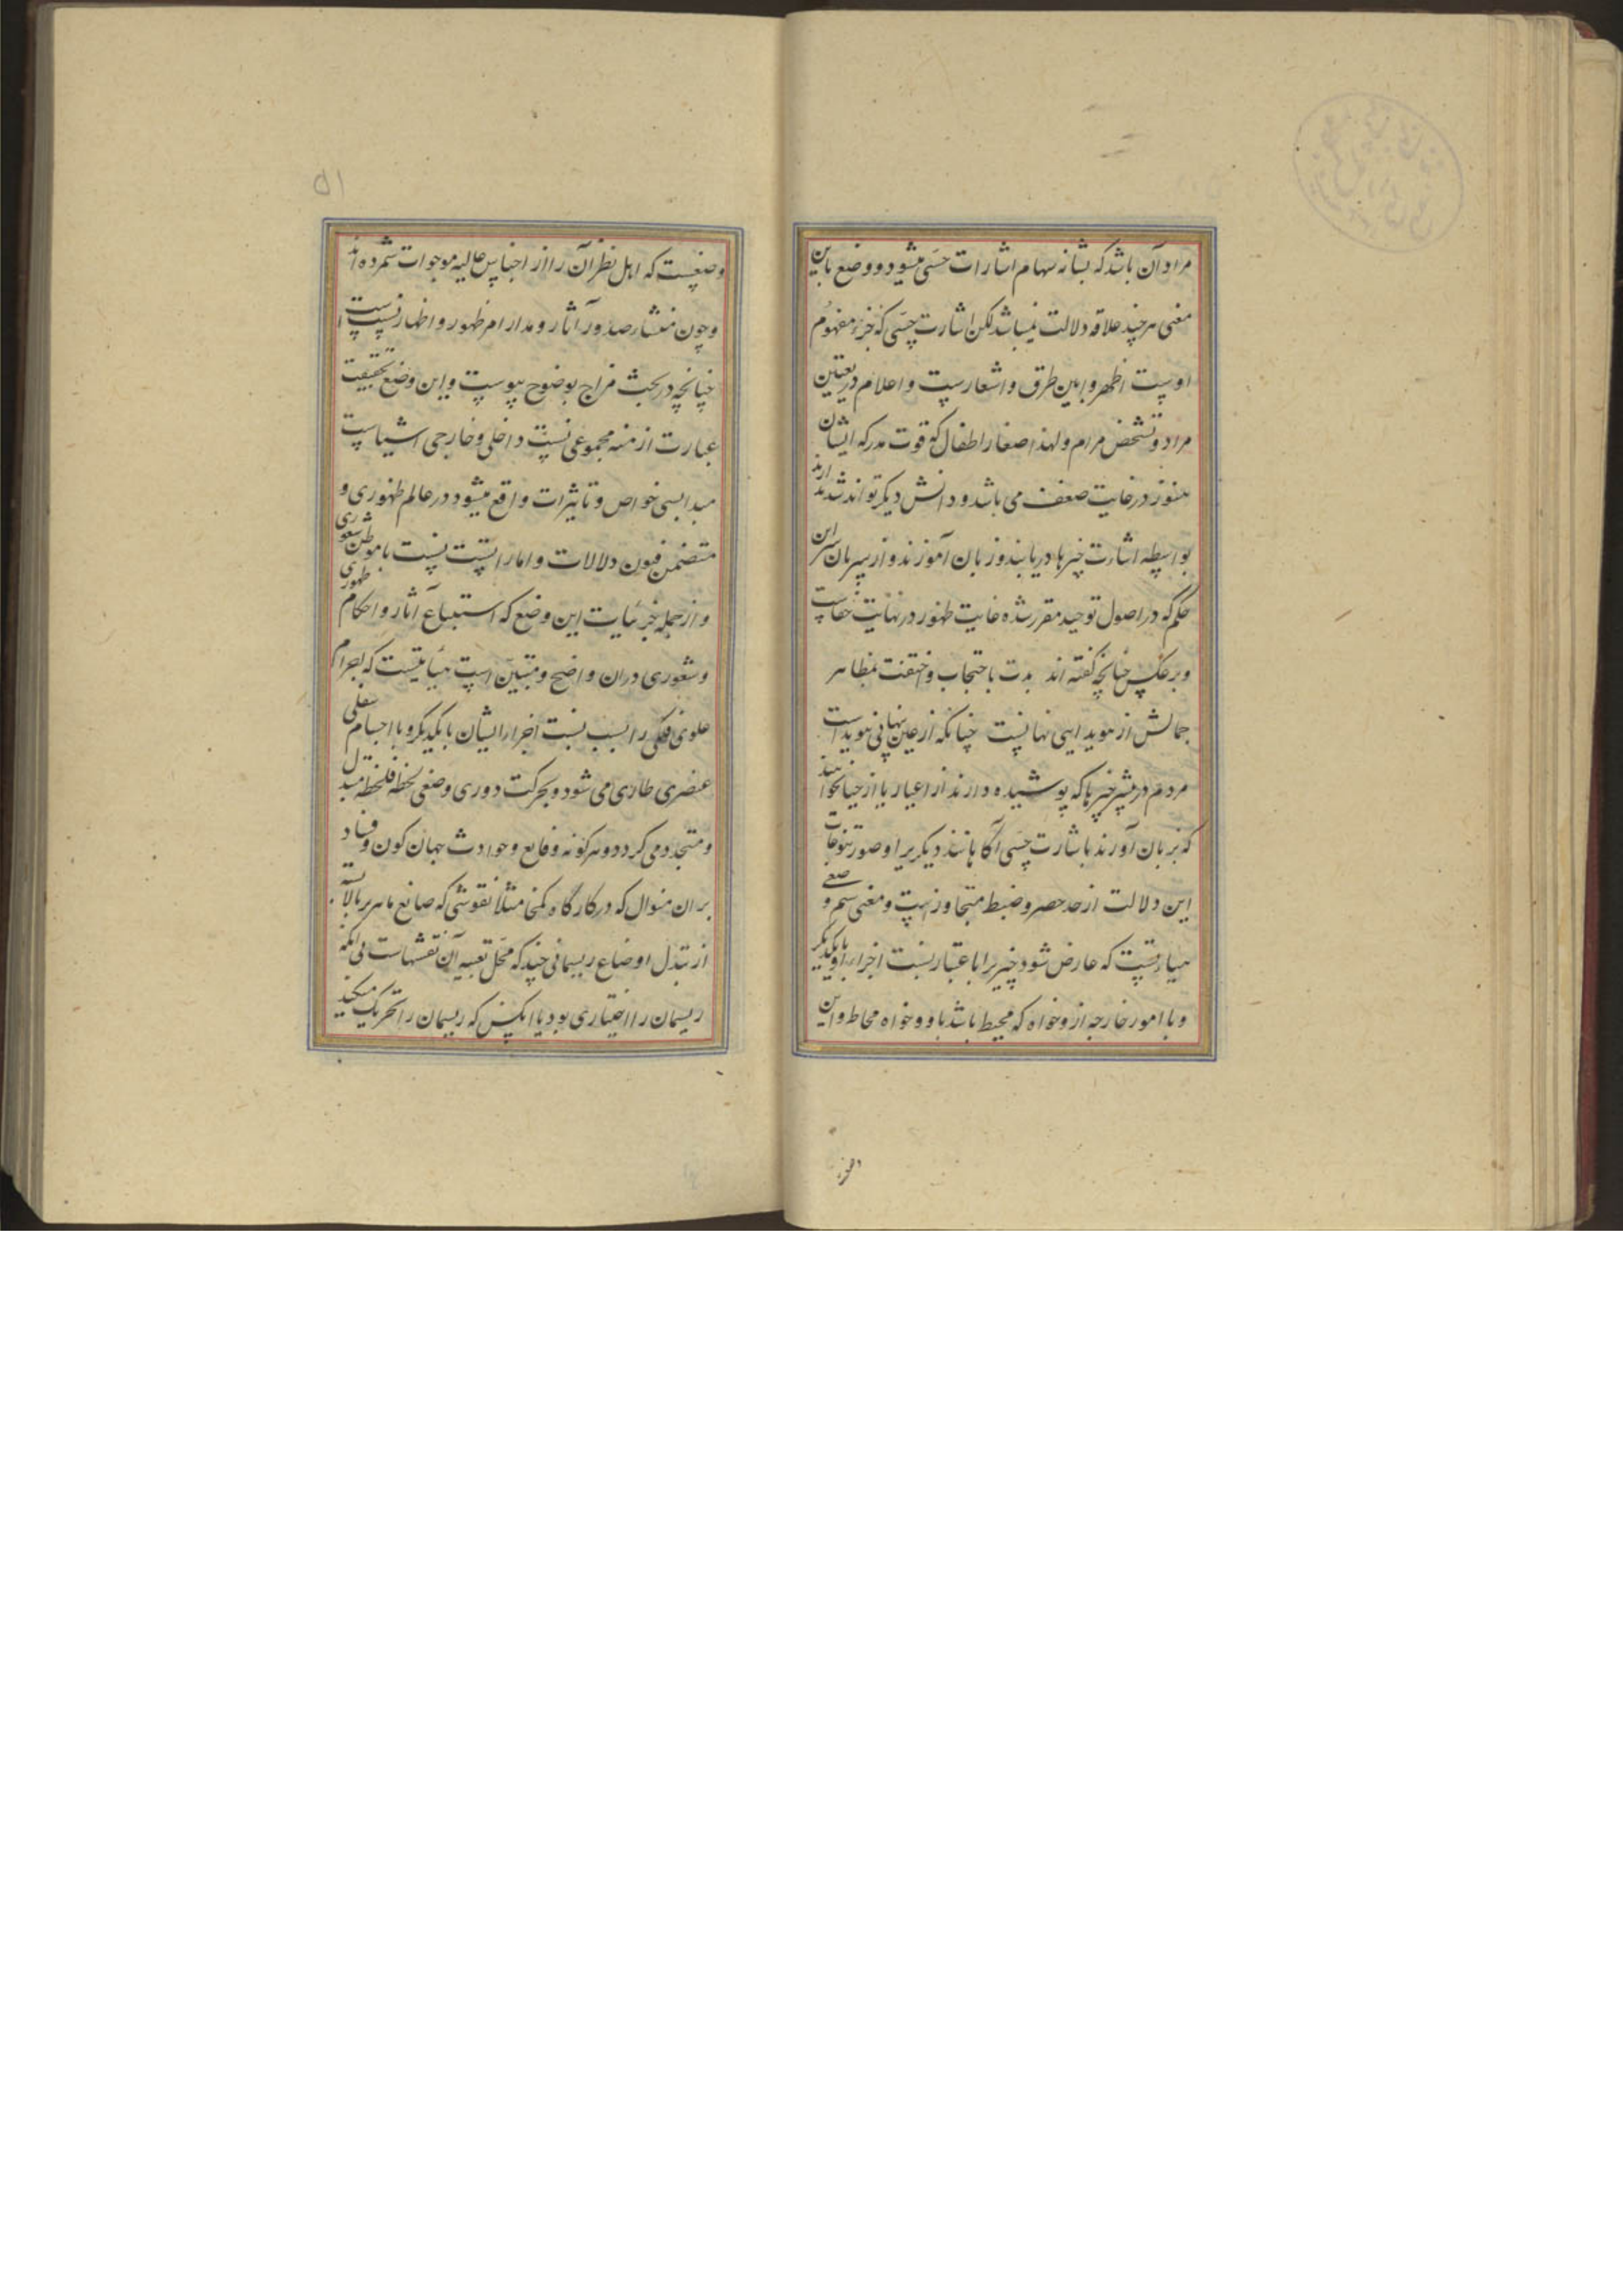 مراد آن باشد که نشانه سهام اشارات حسی میشود و وضع باین
معنی هر چند علاقه دلالت نمیباشد لکن اشارت حسی که جزء مفهوم
اوست اظهر و ابین طرق و اشعارست و اعلام در تعیین
مراد و تشخص مرام ولهذا صغار اطفال که قوت مدرکه ایشان
هنوز در غایت ضعف می باشد و دانش دیگر نتواند شد ازند
بواسطه اشارت چیزها دریابند و زبان آموزند و از سر بیان این
حکم که در اصول توحید مقرر شده غایت ظهور در نهایت خفاست
و بر عکس چنانچه گفته اند بدت باحتجاب و اختفت بمظاهر
جمالش از هویدایی نهانیست چنانکه از عین نهانی هویداست
مردم در بیشتر چیزها که پوشیده دارند از اغیار یا از حیا نخوانند
که بزبان آورند باشارت حسی آگاهانند دیگریرا و صور تنوعات
این دلالت از حد حصر و ضبط متجاوزست و معنی سم وضعی
هیاتیست که عارض شود چیزیرا باعتبار نسبت اجزاء او بایکدیگر
و با امور خارجه ازو خواه که محیط باشد باو و خواه محاط و این
وضعیست که اهل نظر آن را از اجناس عالیه موجوات شمرده اند
و چون منشاء صدور آثار و مدار ام ظهور و اظهار نسبت است
چنانچه در بحث مزاج بوضوح پیوست و این وضع بحقیقت
عبارت از منه مجموعی نسبت داخلی و خارجی اشیاست
مبدا بسی خواص و تاثیرات واقع میشود در عالم ظهوری و
متضمن فنون دلالات و اماراتست نسبت با موطن شعوری
و از جمله جزئیات این وضع که استتباع آثار و احکام ظهوری
و شعوری دران واضح و متبین است هیأتیست که اجرام
علوی فلکی را بسبب نسبت اجزاء ایشان بایکدیگر و با اجسام سفلی
عنصری طاری می شود و بحرکت دوری وضعی لحظه فلحظه متبدل
و متجدد می گردد و هر گونه وقایع و حوادث جهان کون و فساد
بران منوال که در کارگاه کمخا مثلا نقوشی که صانع ماهر بر بالا بسته
از تبدل اوضاع ریسمانی چند که محل تعبیه آن نقشهاست بی آنکه
ریسمان را اختیاری بود یا آنکس که ریسمان را تحریک میکند
۵۱